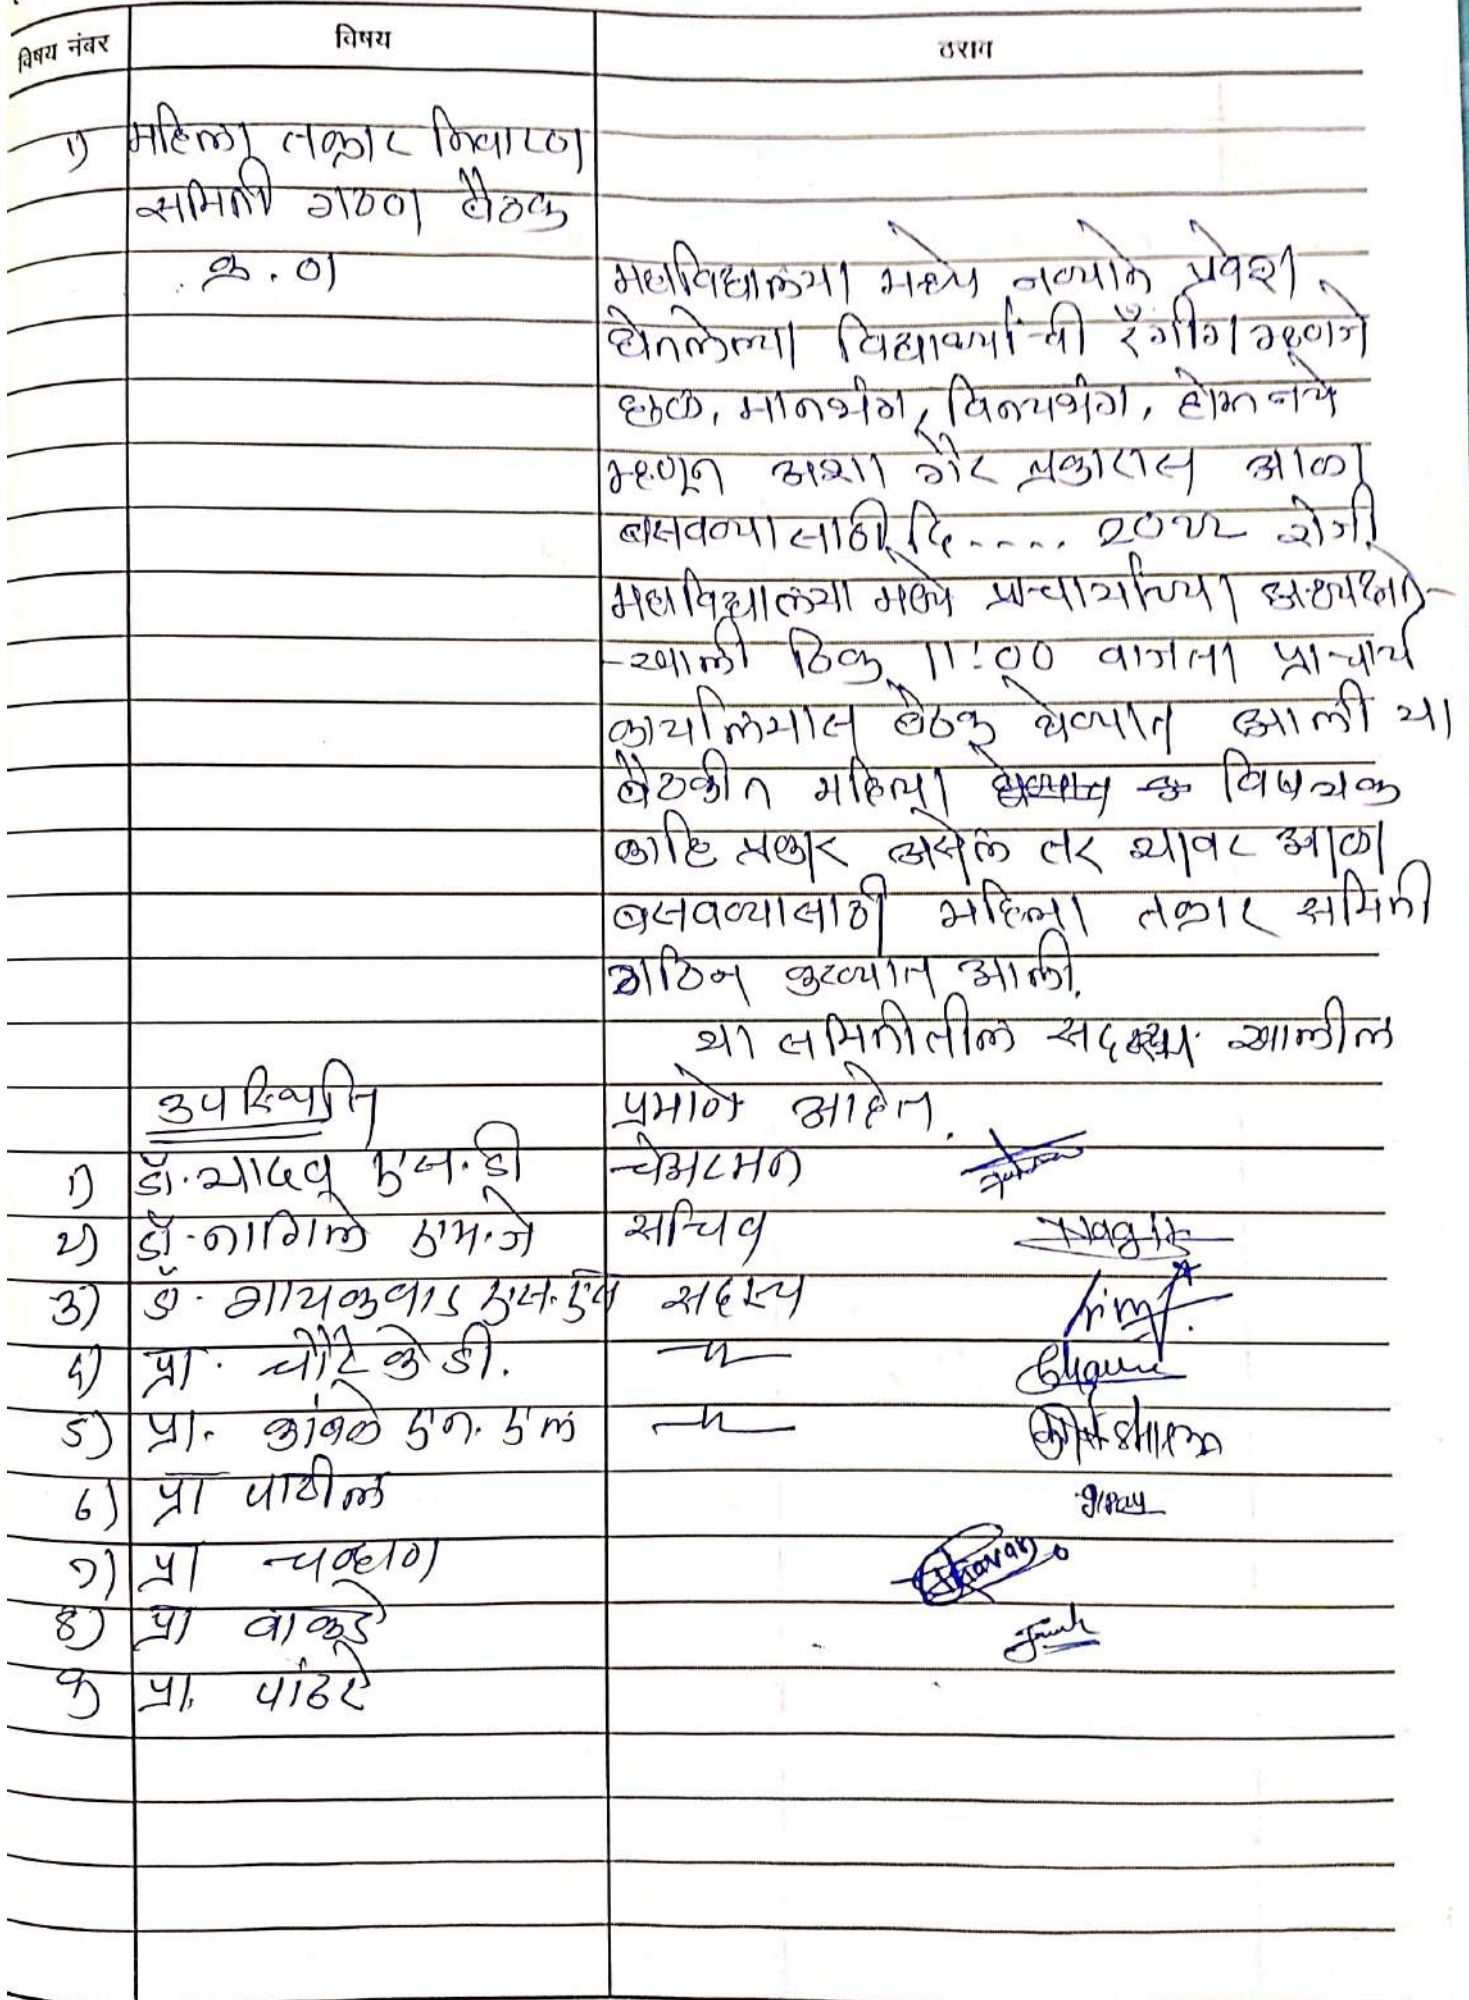 विषय नंबर विषय ठराव
१) महिला तक्रार निवारण
समिती गठण बैठक
क्र. ०१
महाविद्यालया मध्ये नव्याने प्रवेश
घेतलेल्या विद्यार्थ्यांची रॅगींग म्हणजे
छळ, मानभंग, विनयभंग, होऊ नये
म्हणून अशा गैर प्रकारास आळा
बसवण्यासाठी दि..... २०२२ रोजी
महाविद्यालया मध्ये प्राचार्यांच्या अध्यक्षते-
-खाली ठिक 11:00 वाजता प्राचार्य
कार्यालयास बैठक घेण्यात आली या
बैठकीत महिला विषयक
काहि प्रकार असेल तर यावर आळा
बसवण्यासाठी महिला तक्रार समिती
गठित करण्यात आली.
या समितीतील सदस्य खालील
उपस्थिति प्रमाणे आहेत.
१) डॉ. यादव एस. डी चेअरमन
२) डॉ. नागिले एम. जे सचिव
३) डॉ. गायकवाड एस. एच सदस्य
४) प्रा. चौरे के डी. —"—
५) प्रा. कांबळे एन. एल —"—
६) प्रा पाटील
७) प्रा चव्हाण Chavan
८) प्रा वाकडे
९) प्रा. पांढरे